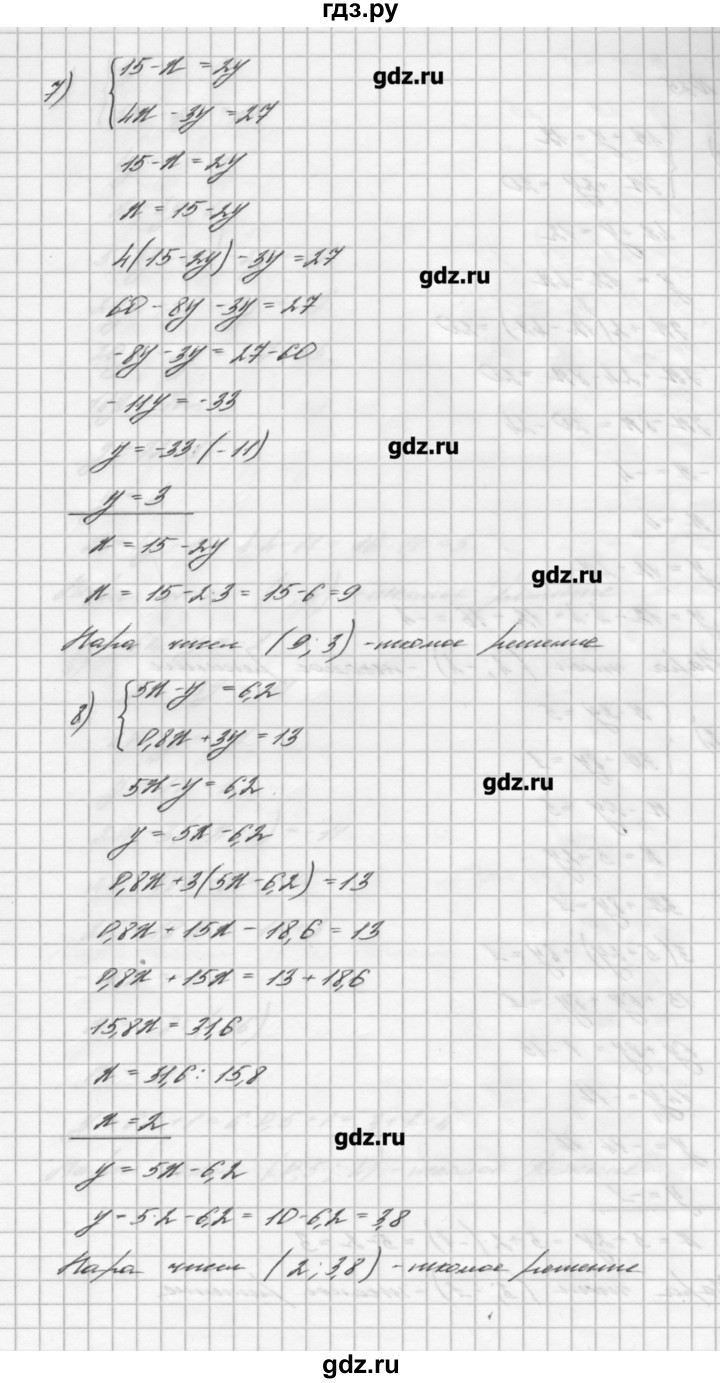 гдз.ру
7) { 15 - x = 2y
gdz.ru
4x - 3y = 27
15 - x = 2y
x = 15 - 2y
4(15 - 2y) - 3y = 27
gdz.ru
60 - 8y - 3y = 27
-8y - 3y = 27 - 60
-11y = -33
y = -33 : (-11)
gdz.ru
y = 3
x = 15 - 2y
gdz.ru
x = 15 - 2·3 = 15 - 6 = 9
Пара чисел (9; 3) - искомое решение
8) { 5x - y = 6,2
0,8x + 3y = 13
5x - y = 6,2
gdz.ru
y = 5x - 6,2
0,8x + 3(5x - 6,2) = 13
0,8x + 15x - 18,6 = 13
0,8x + 15x = 13 + 18,6
15,8x = 31,6
x = 31,6 : 15,8
x = 2
gdz.ru
y = 5x - 6,2
y = 5·2 - 6,2 = 10 - 6,2 = 3,8
Пара чисел (2; 3,8) - искомое решение
gdz.ru